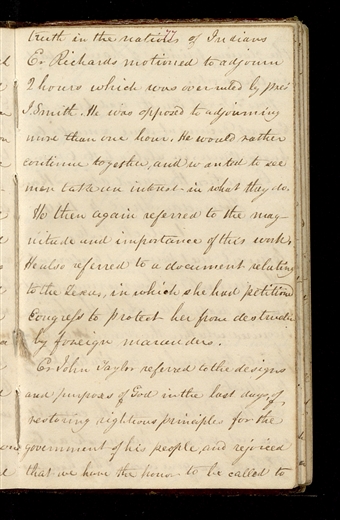 truth in the nations of Indians
Er. Richards motioned to adjourn
2 hours which was overruled by Pres
J. Smith. He was opposed to adjourning
more than one hour. He would rather
continue together, and wanted to see
men take an interest in what they do.
He then again referred to the mag-
nitude and importance of this work,
He also referred to a document relating
to the Texas, in which she had petitiond
Congress to protect her from destruction
by foreign marauders.
Er. John Taylor referred to the designs
and purposes of God in the last days of
restoring righteous principles for the
government of his people, and rejoiced
that we have the honor to be called to